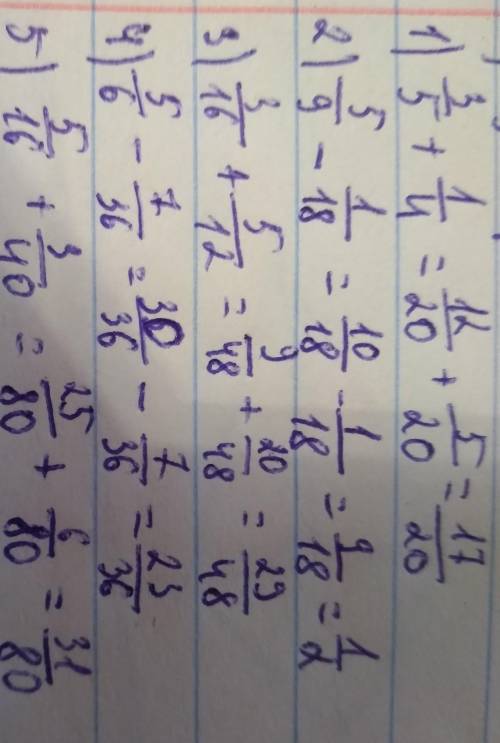 1) 3/5 + 1/4 = 12/20 + 5/20 = 17/20
2) 5/9 - 1/18 = 10/18 - 1/18 = 9/18 = 1/2
3) 3/16 + 5/12 = 9/48 + 20/48 = 29/48
4) 5/6 - 7/36 = 30/36 - 7/36 = 23/36
5) 5/16 + 3/40 = 25/80 + 6/80 = 31/80